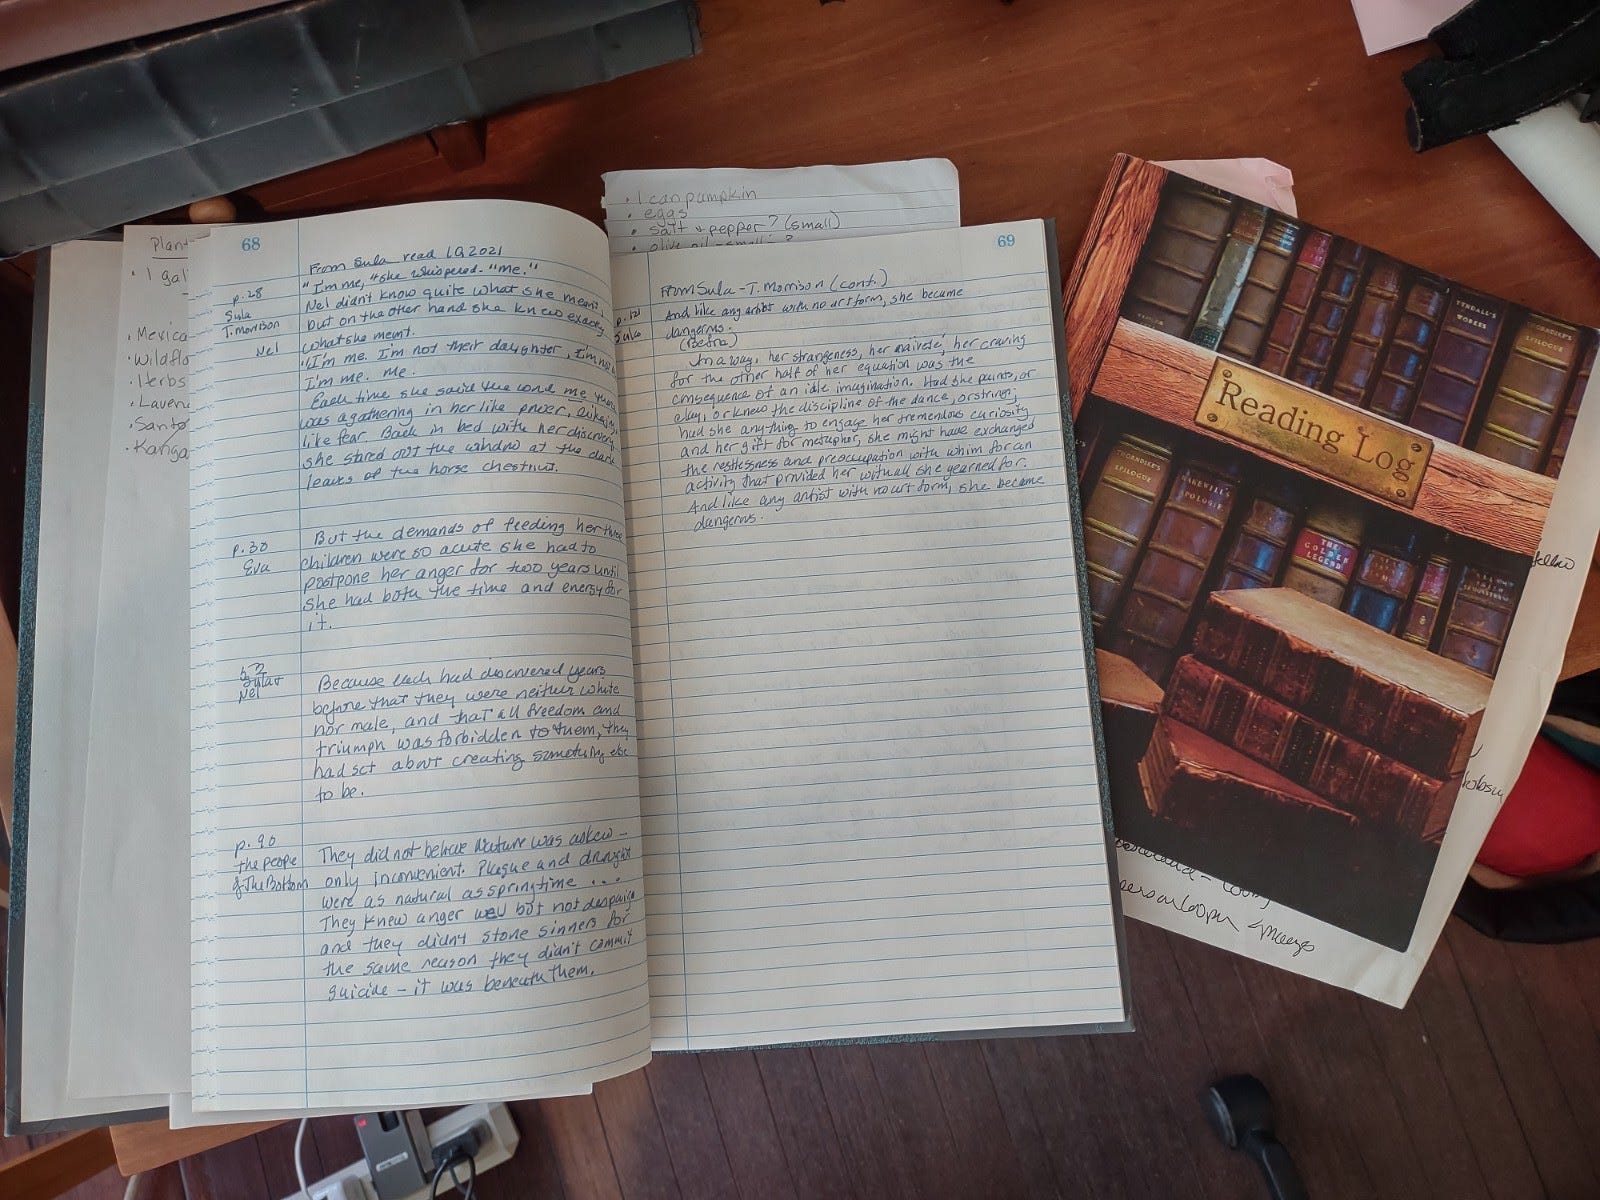 1 can pumpkin
eggs
salt & pepper? (small)
Plant
1 gal
Mexica
Wildflo
Herbs
Laven
Santo
Kanga
68
From Sula read 10 2021
p. 28
Sula
T. Morrison
Nel
"I'm me," she whispered. "Me."
Nel didn't know quite what she meant,
but on the other hand she knew exactly
what she meant.
"I'm me. I'm not their daughter, I'm not
I'm me. Me.
Each time she said the word me there
was a gathering in her like power, like joy,
like fear. Back in bed with her discovery
she stared out the window at the dark
leaves of the horse chestnut.
p. 30
Eva
But the demands of feeding her three
children were so acute she had to
postpone her anger for two years until
she had both the time and energy for
it.
52
Sula &
Nel
Because each had discovered years
before that they were neither white
nor male, and that all freedom and
triumph was forbidden to them, they
had set about creating something else
to be.
p. 90
the people
of The Bottom
They did not believe Nature was askew –
only inconvenient. Plague and drought
were as natural as springtime ....
They knew anger well but not despair
and they didn't stone sinners for
the same reason they didn't commit
suicide – it was beneath them.
69
From Sula – T. Morrison (cont.)
p. 121
Sula
And like any artist with no art form, she became
dangerous.
(Before)
In a way, her strangeness, her naiveté, her craving
for the other half of her equation was the
consequence of an idle imagination. Had she paints, or
clay, or knew the discipline of the dance, or strings,
had she anything to engage her tremendous curiosity
and her gift for metaphor, she might have exchanged
the restlessness and preoccupation with whim for an
activity that provided her with all she yearned for.
And like any artist with no art form, she became
dangerous.
TENDALL'S
WORKES
THORNDIKE'S
EPILOGUE
Reading Log
THORNDIKE'S
EPILOGUE
BAKEWELL'S
APOLOGIE
THE
GOLDEN
LEGEND